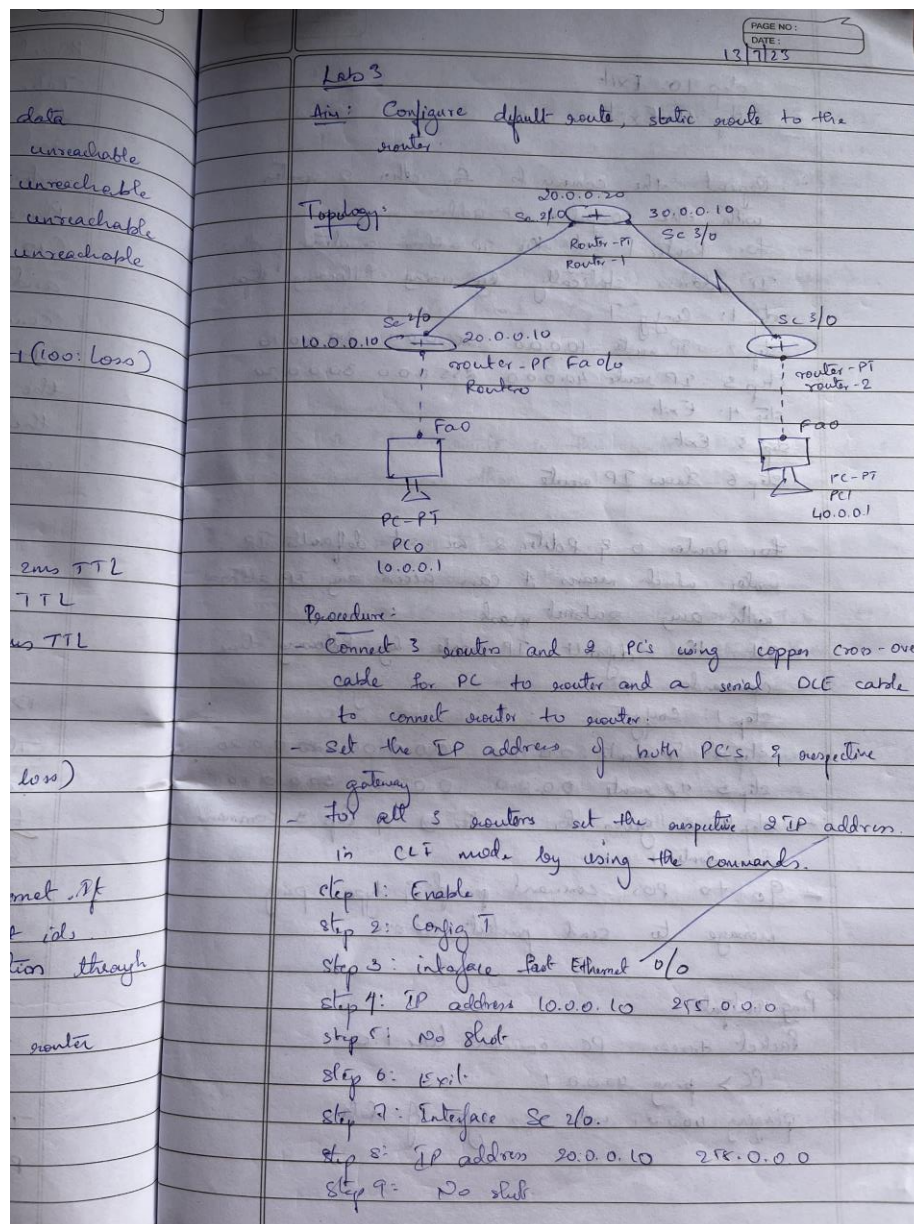 PAGE NO:
DATE:
13/7/23
data
unreachable
unreachable
unreachable
unreachable
(100: Loss)
2ms TTL
TTL
TTL
loss)
ids
through
router
Lab 3
Aim: Configure default route, static route to the
router.
Topology:
20.0.0.20
Se 2/0
30.0.0.10
Se 3/0
Router-PT
Router-1
Se 2/0
10.0.0.10
20.0.0.10
router-PT Fa0/0
Router0
Se 3/0
router-PT
router-2
Fa0
Fa0
PC-PT
PC0
10.0.0.1
PC-PT
PC1
40.0.0.1
Procedure:
- Connect 3 routers and 2 PC's using copper cross-over
cable for PC to router and a serial DCE cable
to connect router to router.
- Set the IP address of both PC's & respective
gateway
- For all 3 routers set the respective 2 IP address.
in CLI mode by using the commands.
step 1: Enable
step 2: Config T
step 3: interface fast Ethernet 0/0
step 4: IP address 10.0.0.10 255.0.0.0
step 5: No Shut
step 6: Exit.
step 7: Interface Se 2/0.
step 8: IP address 20.0.0.10 255.0.0.0
step 9: No shut